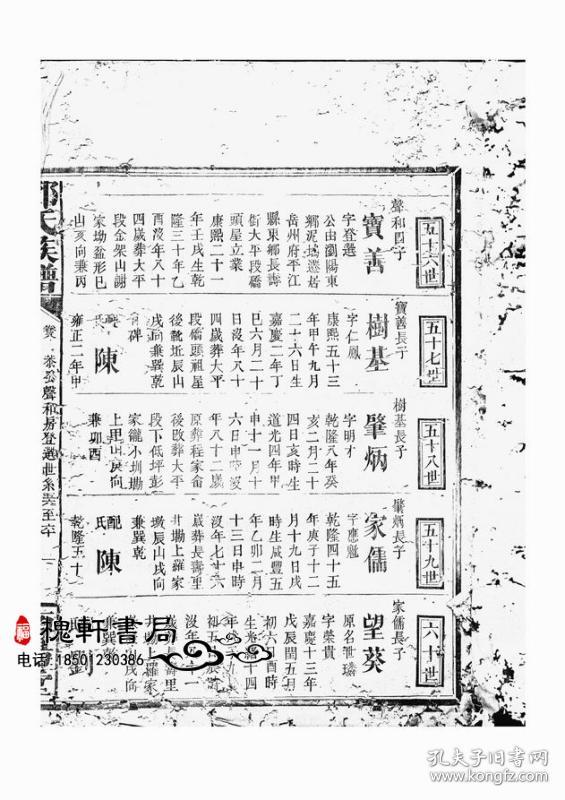 五十六世
聲和四子
寶善
字登選
公由瀏陽東
鄉泥塢遷居
岳州府平江
縣東鄉長壽
街大平段礄
頭屋立業
康熙二十一
年壬戌生乾
隆三十年乙
酉沒年八十
四歲葬大平
段金架山謝
家坳盆形巳
山亥向兼丙
五十七世
寶善長子
樹基
字仁鳳
康熙五十三
年甲午九月
二十六日生
嘉慶二年丁
巳六月二十
日沒年八十
四歲葬大平
段礄頭祖屋
後靴近辰山
戌向兼巽乾
有碑
陳
雍正二年甲
五十八世
樹基長子
肇炳
字明才
乾隆八年癸
亥二月二十
四日亥時生
道光四年甲
申十一月十
六日申時沒
年八十二歲
原葬程家侖
後改葬大平
段下低坪彭
家籠小圳坳
上甲山庚向
兼卯酉
五十九世
肇炳長子
家儒
字應魁
乾隆四十五
年庚子十二
月十九日戌
時生咸豐五
年乙卯二月
十三日申時
沒年七十六
歲葬長壽里
井坳上羅家
壙辰山戌向
兼巽乾
配陳氏
乾隆五十
六十世
家儒長子
望葵
原名世璠
字榮貴
嘉慶十三年
戊辰閏五月
初六日酉時
生光緒十四
兼巽乾
劉
氏族譜
槐軒書局
电话:18501230386
福
孔夫子旧书网
www.kongfz.com